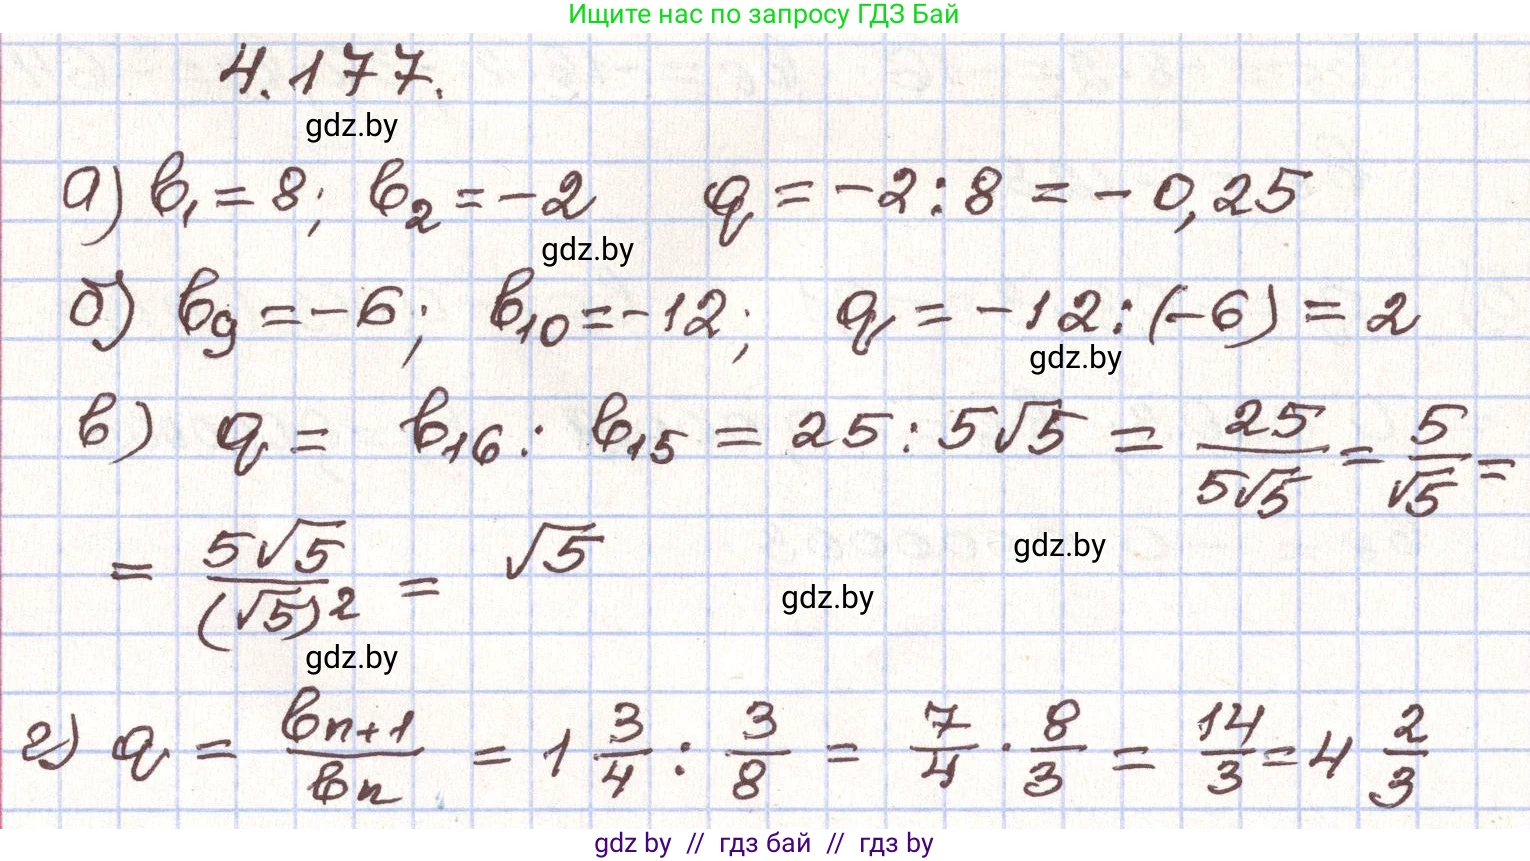 Ищите нас по запросу ГДЗ Бай
4.177.
gdz.by
а) b₁ = 8; b₂ = -2 q = -2 : 8 = -0,25
gdz.by
б) b₉ = -6; b₁₀ = -12; q = -12 : (-6) = 2
gdz.by
в) q = b₁₆ : b₁₅ = 25 : 5√5 = 25/(5√5) = 5/√5 =
= 5√5/(√5)² = √5
gdz.by
gdz.by
gdz.by
г) q = bₙ₊₁/bₙ = 1 3/4 : 3/8 = 7/4 · 8/3 = 14/3 = 4 2/3
gdz by // гдз бай // гдз by